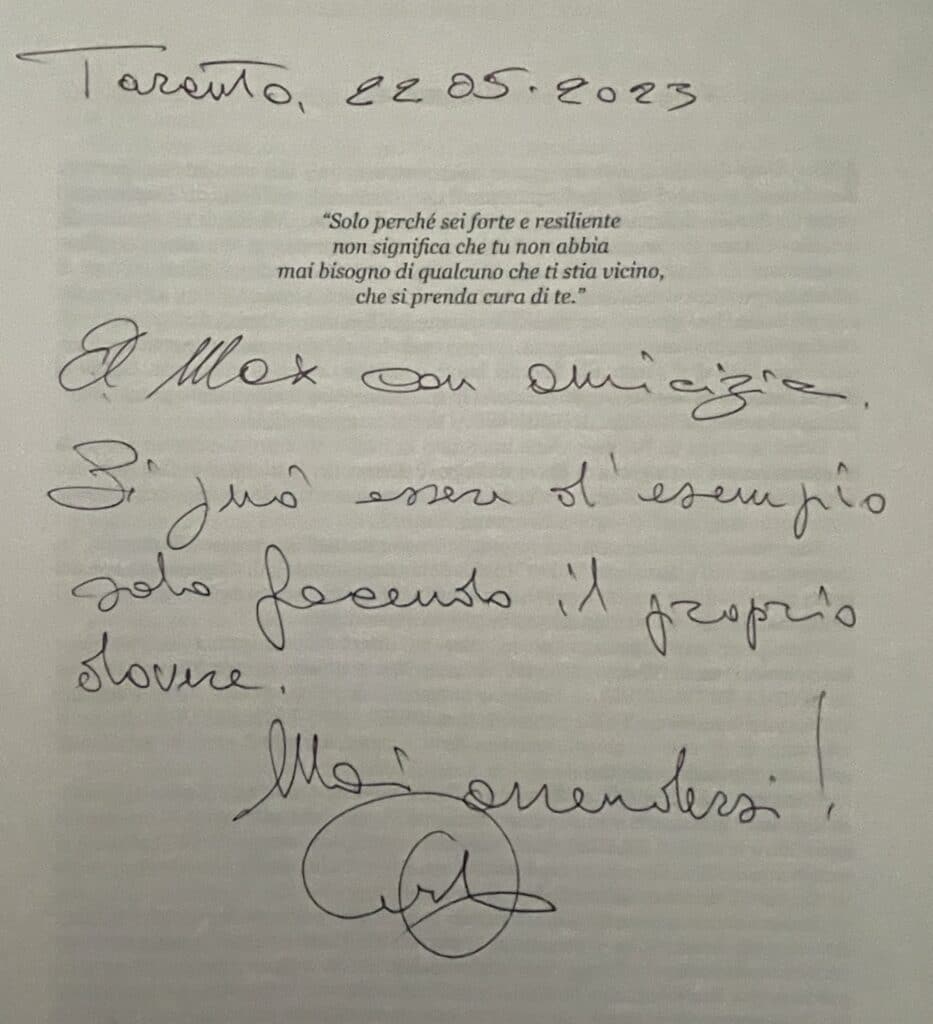 Taranto, 22 05. 2023
“Solo perché sei forte e resiliente
non significa che tu non abbia
mai bisogno di qualcuno che ti stia vicino,
che si prenda cura di te.”
A Max con amicizia.
Si può essere d'esempio
solo facendo il proprio
dovere.
Mai arrendersi!